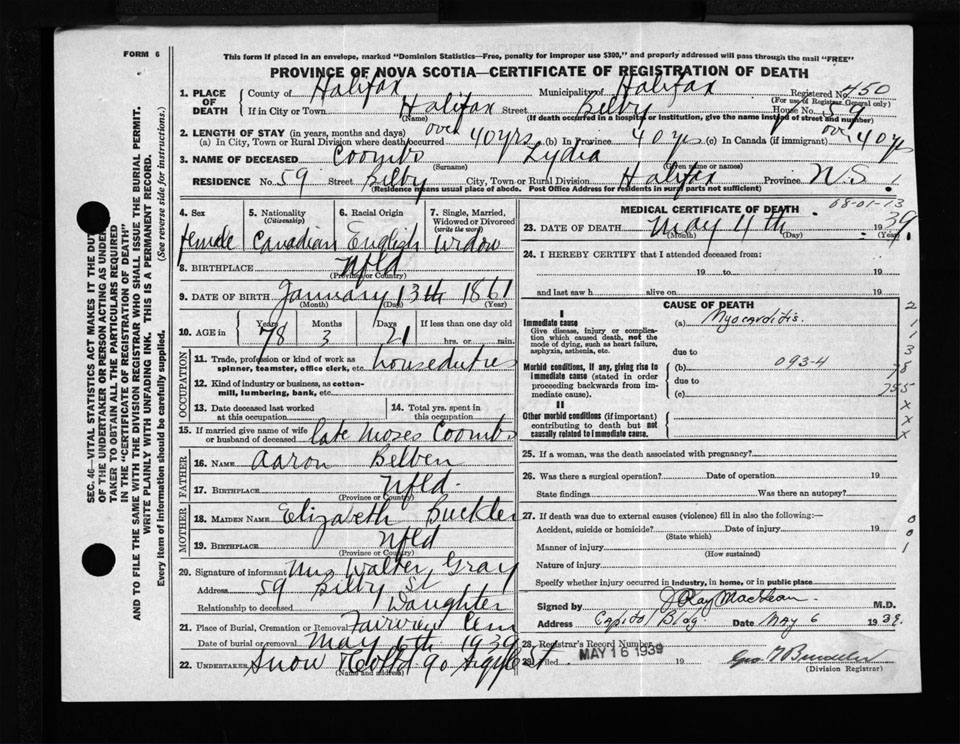 FORM 6
This form if placed in an envelope, marked "Dominion Statistics—Free, penalty for improper use $300," and properly addressed will pass through the mail "FREE"
PROVINCE OF NOVA SCOTIA—CERTIFICATE OF REGISTRATION OF DEATH
1. PLACE OF DEATH County of Halifax Municipality of Halifax Registered No. 450
(For use of Registrar General only)
If in City or Town Halifax Street Bilby House No. 59
(Name) (If death occurred in a hospital or institution, give the name instead of street and number)
2. LENGTH OF STAY (in years, months and days)
(a) In City, Town or Rural Division where death occurred over 40 yrs (b) In Province 40 yrs (c) In Canada (if immigrant) over 40 yrs
3. NAME OF DECEASED Coombs Lydia
(Surname) (Given name or names)
RESIDENCE No. 59 Street Bilby City, Town or Rural Division Halifax Province N.S.
(Residence means usual place of abode. Post Office Address for residents in rural parts not sufficient)
4. Sex female
5. Nationality (Citizenship) Canadian
6. Racial Origin English
7. Single, Married, Widowed or Divorced (write the word) Widow
8. BIRTHPLACE Nfld
(Province or Country)
9. DATE OF BIRTH January 13th 1861
(Month) (Day) (Year)
10. AGE in Years 78 Months 3 Days 21 If less than one day old hrs. or min.
OCCUPATION
11. Trade, profession or kind of work as spinner, teamster, office clerk, etc. houseduties
12. Kind of industry or business, as cotton-mill, lumbering, bank, etc.
13. Date deceased last worked at this occupation
14. Total yrs. spent in this occupation
15. If married give name of wife or husband of deceased late Moses Coombs
FATHER
16. NAME Aaron Belben
17. BIRTHPLACE Nfld.
(Province or Country)
MOTHER
18. MAIDEN NAME Elizabeth Buckler
19. BIRTHPLACE Nfld
(Province or Country)
20. Signature of informant Mrs Walter Gray
Address 59 Bilby St
Relationship to deceased Daughter
21. Place of Burial, Cremation or Removal Fairview Cem
Date of burial or removal May 6th 1939
22. UNDERTAKER Snow & Co Ltd 90 Argyle St.
(Name and address)
MEDICAL CERTIFICATE OF DEATH 68-01-13
23. DATE OF DEATH May 4th 1939.
(Month) (Day) (Year)
24. I HEREBY CERTIFY that I attended deceased from:
19 to 19
and last saw h alive on 19
CAUSE OF DEATH
I
Immediate cause
Give disease, injury or complication which caused death, not the mode of dying, such as heart failure, asphyxia, asthenia, etc.
(a) Myocarditis.
due to
Morbid conditions, if any, giving rise to immediate cause (stated in order proceeding backwards from immediate cause).
(b) 093-4
due to
(c)
II
Other morbid conditions (if important) contributing to death but not causally related to immediate cause.
2
1
1
3
78
755
X
X
X
25. If a woman, was the death associated with pregnancy?
26. Was there a surgical operation? Date of operation 19
State findings Was there an autopsy?
27. If death was due to external causes (violence) fill in also the following:—
Accident, suicide or homicide? Date of injury 19
(State which)
Manner of injury
(How sustained)
Nature of injury
Specify whether injury occurred in industry, in home, or in public place
0
0
1
Signed by J Ray MacLean M.D.
Address Capitol Bldg. Date May 6 1939
28. Registrar's Record Number
29. Filed MAY 16 1939 19
(Division Registrar)
SEC. 46—VITAL STATISTICS ACT MAKES IT THE DUTY
OF THE UNDERTAKER OR PERSON ACTING AS UNDER-
TAKER TO OBTAIN ALL THE PARTICULARS REQUIRED
IN THE "CERTIFICATE OF REGISTRATION OF DEATH"
AND TO FILE THE SAME WITH THE DIVISION REGISTRAR WHO SHALL ISSUE THE BURIAL PERMIT.
WRITE PLAINLY WITH UNFADING INK. THIS IS A PERMANENT RECORD.
Every item of information should be carefully supplied. (See reverse side for instructions.)